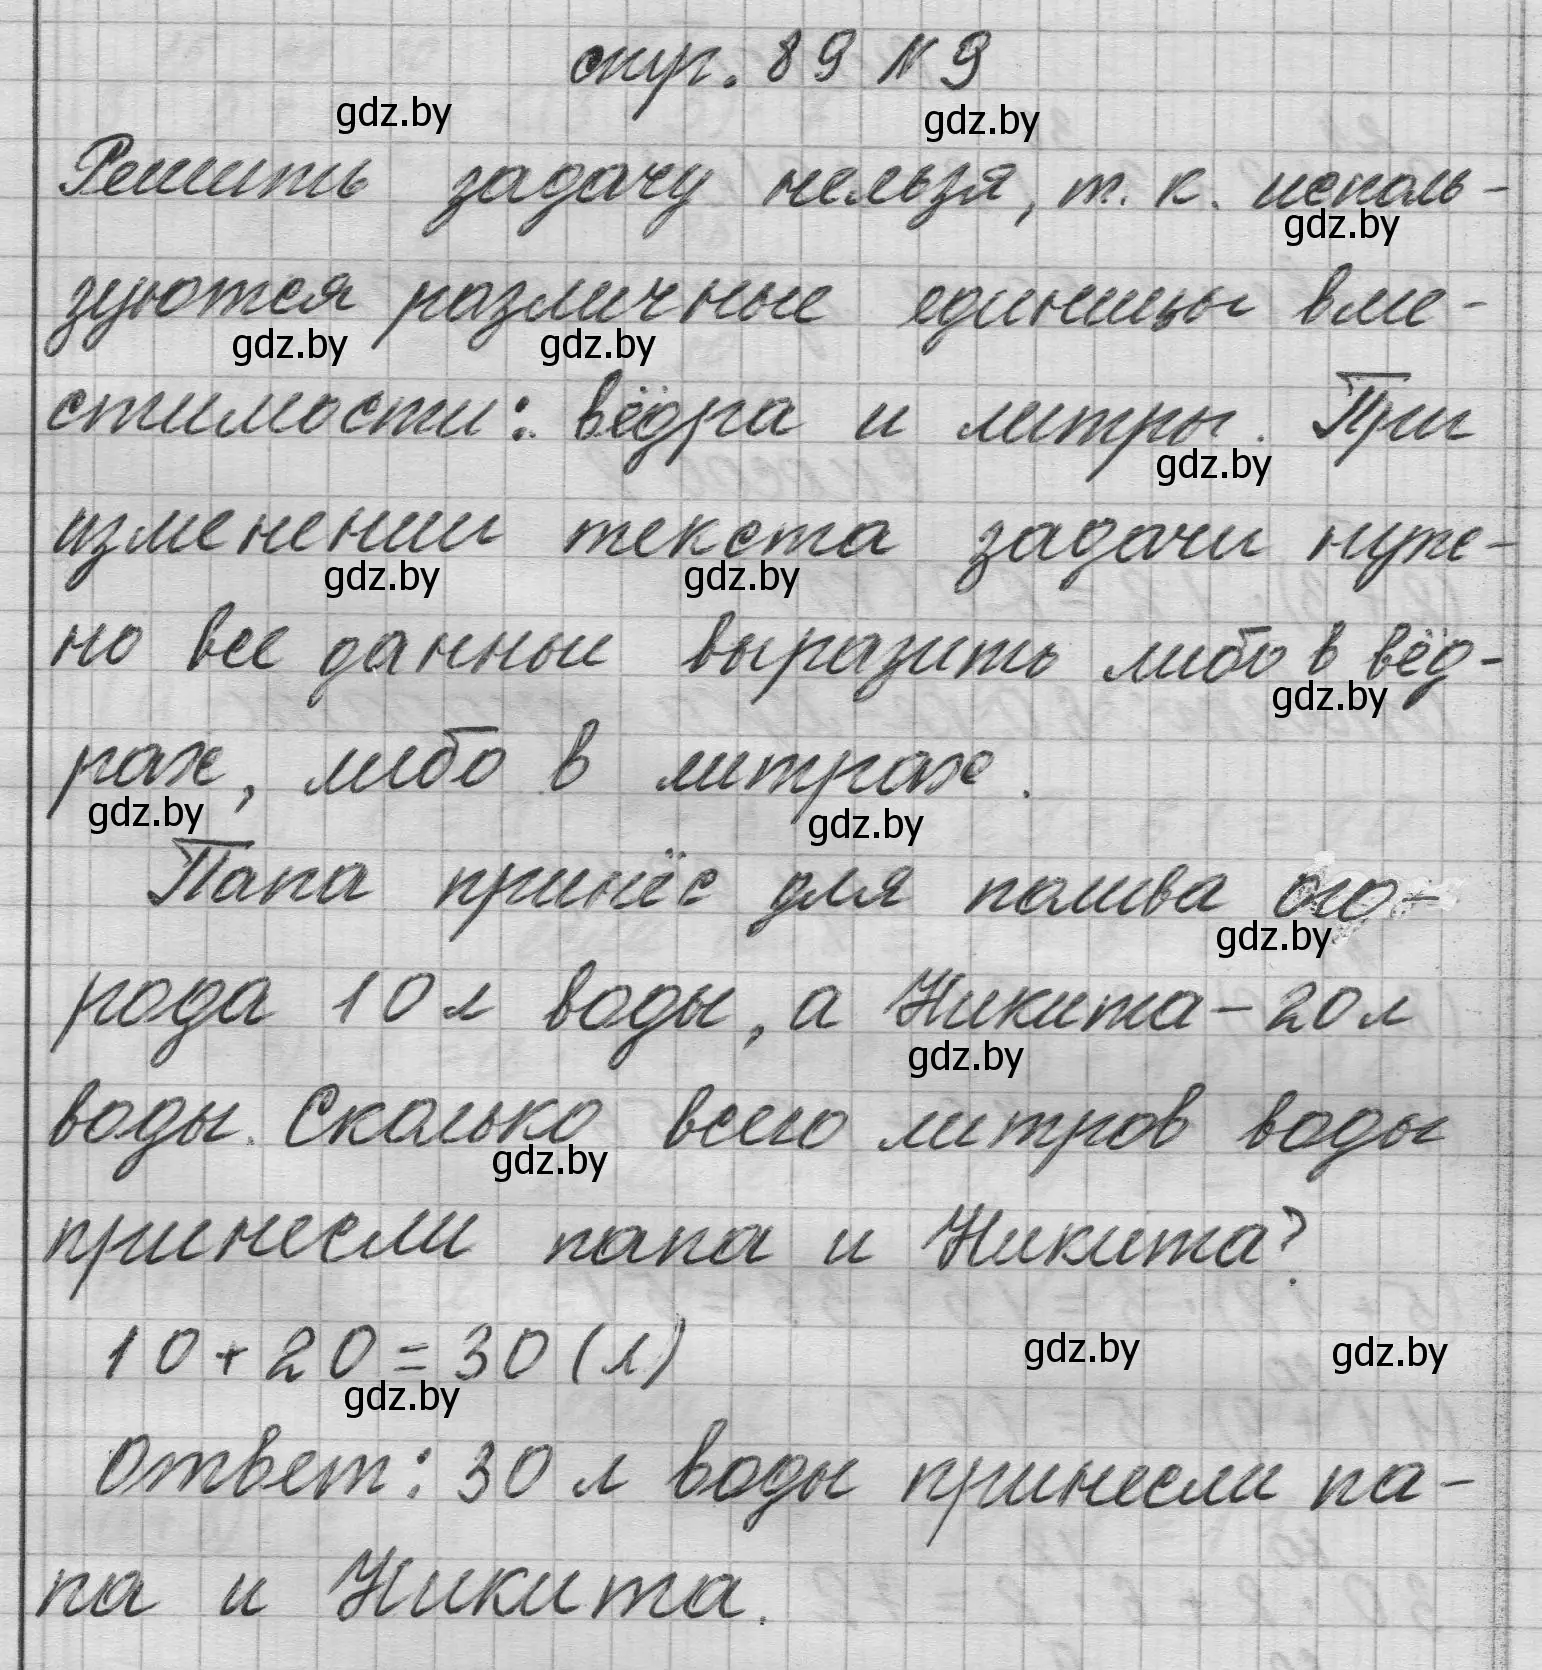 стр. 89 № 9
gdz.by gdz.by
Решить задачу нельзя, т. к. исполь-
gdz.by
зуются различные единицы вме-
gdz.by gdz.by
стимости: вёдра и литры. При
gdz.by
изменении текста задачи нуж-
gdz.by gdz.by
но все данные выразить либо в вёд-
gdz.by
рах, либо в литрах.
gdz.by gdz.by
Папа принёс для полива ого-
gdz.by
рода 10 л воды, а Никита - 20 л
gdz.by
воды. Сколько всего литров воды
gdz.by
принесли папа и Никита?
10 + 20 = 30 (л) gdz.by gdz.by
gdz.by
Ответ: 30 л воды принесли па-
па и Никита.